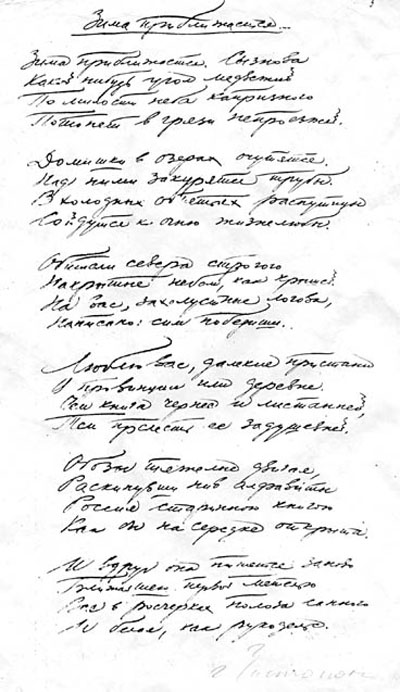 Зима приближается.
Зима приближается. Сызнова
Какой нибудь угол медвежий
По милости неба капризного
Потонет в грязи непроезжей.
Домишки в озерах очутятся.
Над ними закурятся трубы.
В холодных об'ятьях распутицы
Сойдутся к огню жизнелюбы.
Обители севера строгого
Накрытые небом, как крышей
На вас, захолустные логова,
Написано: сим победиши.
Люблю вас, далекие пристани
В провинции или деревне.
Чем книга чернее и листанней,
Тем прелесть ее задушевней.
Обозы тяжелые двигая,
Раскинувши нив алфавиты
Россия старинною книгою
Как бы на середке открыта.
И вдруг она пишется заново
Ближайшею первой метелью
Вся в росчерках полоза санного
И белая, как рукоделье.